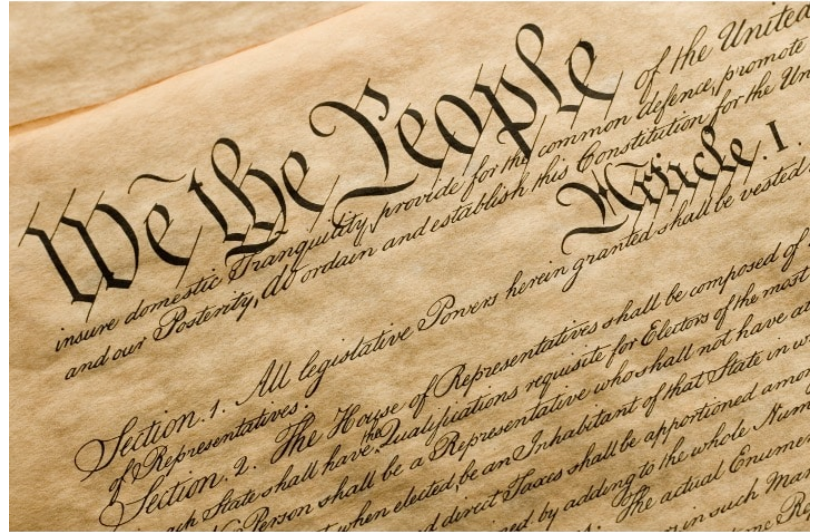 We the People of the United
insure domestic Tranquility, provide for the common defence, promote
and our Posterity, do ordain and establish this Constitution for the Un
Article. I.
Section. 1. All legislative Powers herein granted shall be vested
of Representatives.
Section. 2. The House of Representatives shall be composed of
ch State shall have the Qualifications requisite for Electors of the most
Person shall be a Representative who shall not have at
when elected, be an Inhabitant of that State in w
d direct Taxes shall be apportioned amon
ned, by adding to the whole Num
The actual Enumer
in such Man